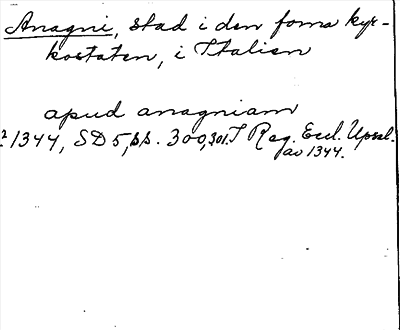 Anagni, stad i den forna kyr-
kostaten, i Italien
apud anagniam
1344, SD 5, ss. 300, 301. T Reg. Eccl. Upsal.
av 1344.